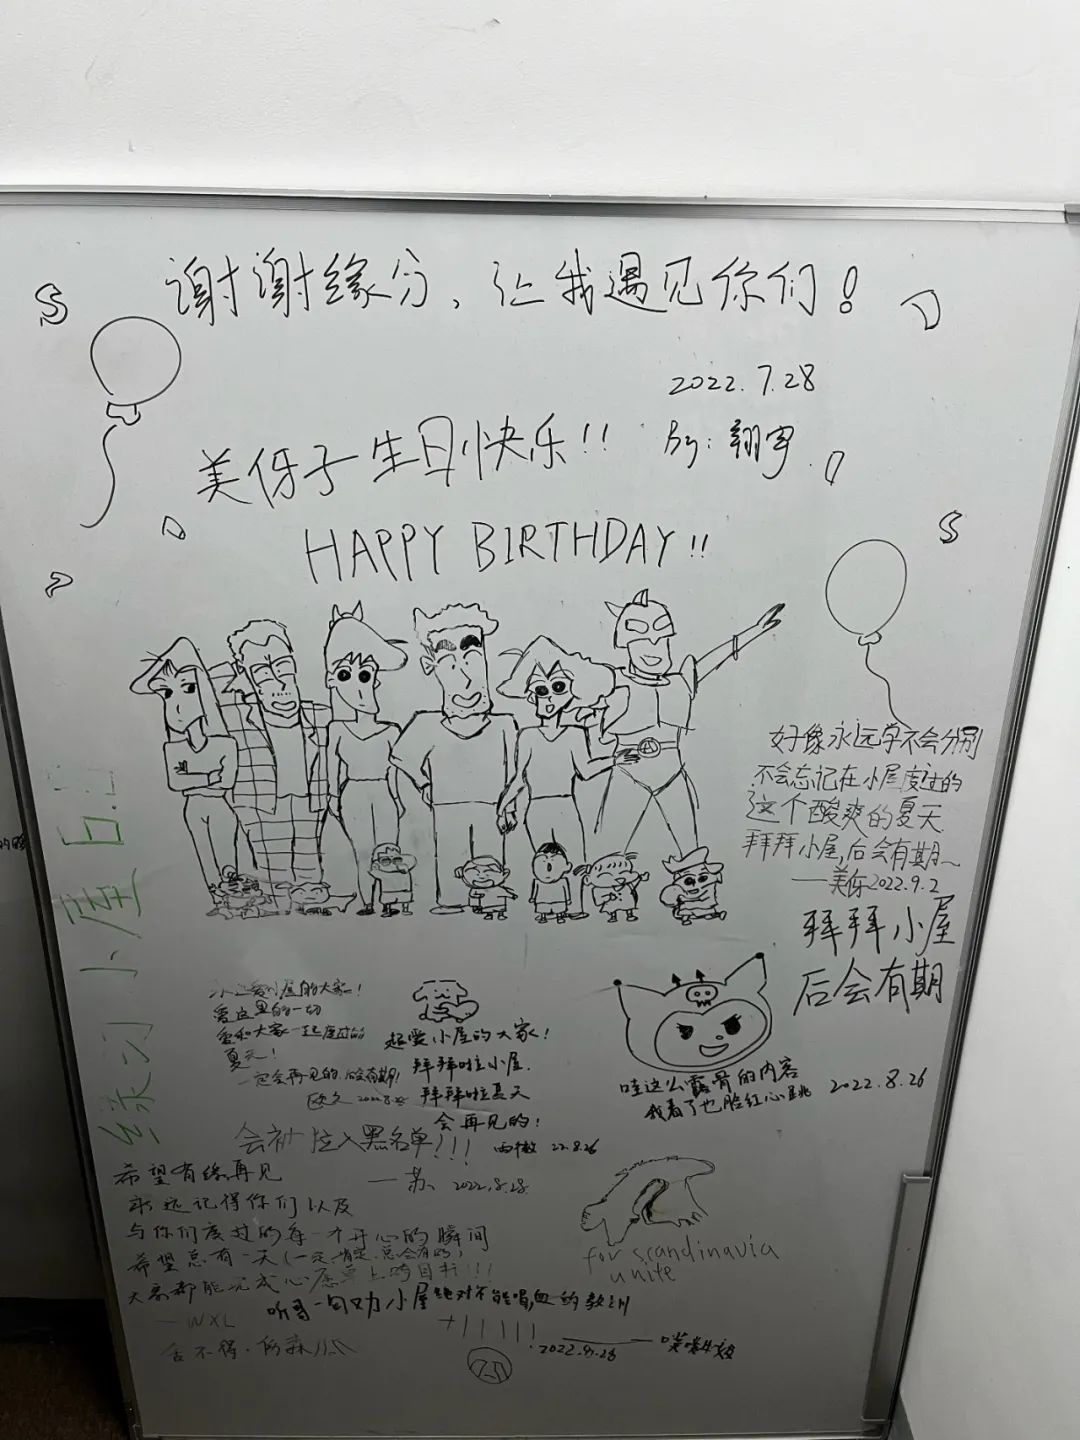 谢谢缘分，让我遇见你们！
2022.7.28
By：翔宇
美伢子生日快乐!!
HAPPY BIRTHDAY!!
好像永远学不会分别
不会忘记在小屋度过的
这个酸爽的夏天
拜拜小屋,后会有期~
——美伢2022.9.2
拜拜小屋
后会有期
练习小屋
小屋的大家!
爱这里的一切
爱和大家一起度过的
夏天!
一定会再见的,后会有期!
超爱小屋的大家!
拜拜啦小屋
拜拜啦夏天
会再见的!
22.8.26
哇这么露骨的内容
我看了也脸红心跳
2022.8.26
会被拉入黑名单!!!
—苏 2022.8.28
希望有缘再见
永远记得你们以及
与你们度过的每一个开心的瞬间
希望总有一天(一定,肯定,总会有的)
大家都能完成心愿单上的目标!!!
—WXL
听哥一句劝小屋绝对不能喝,血的教训
+1 1 1 1 1
2022.8.28
舍不得
for scandinavia
unite